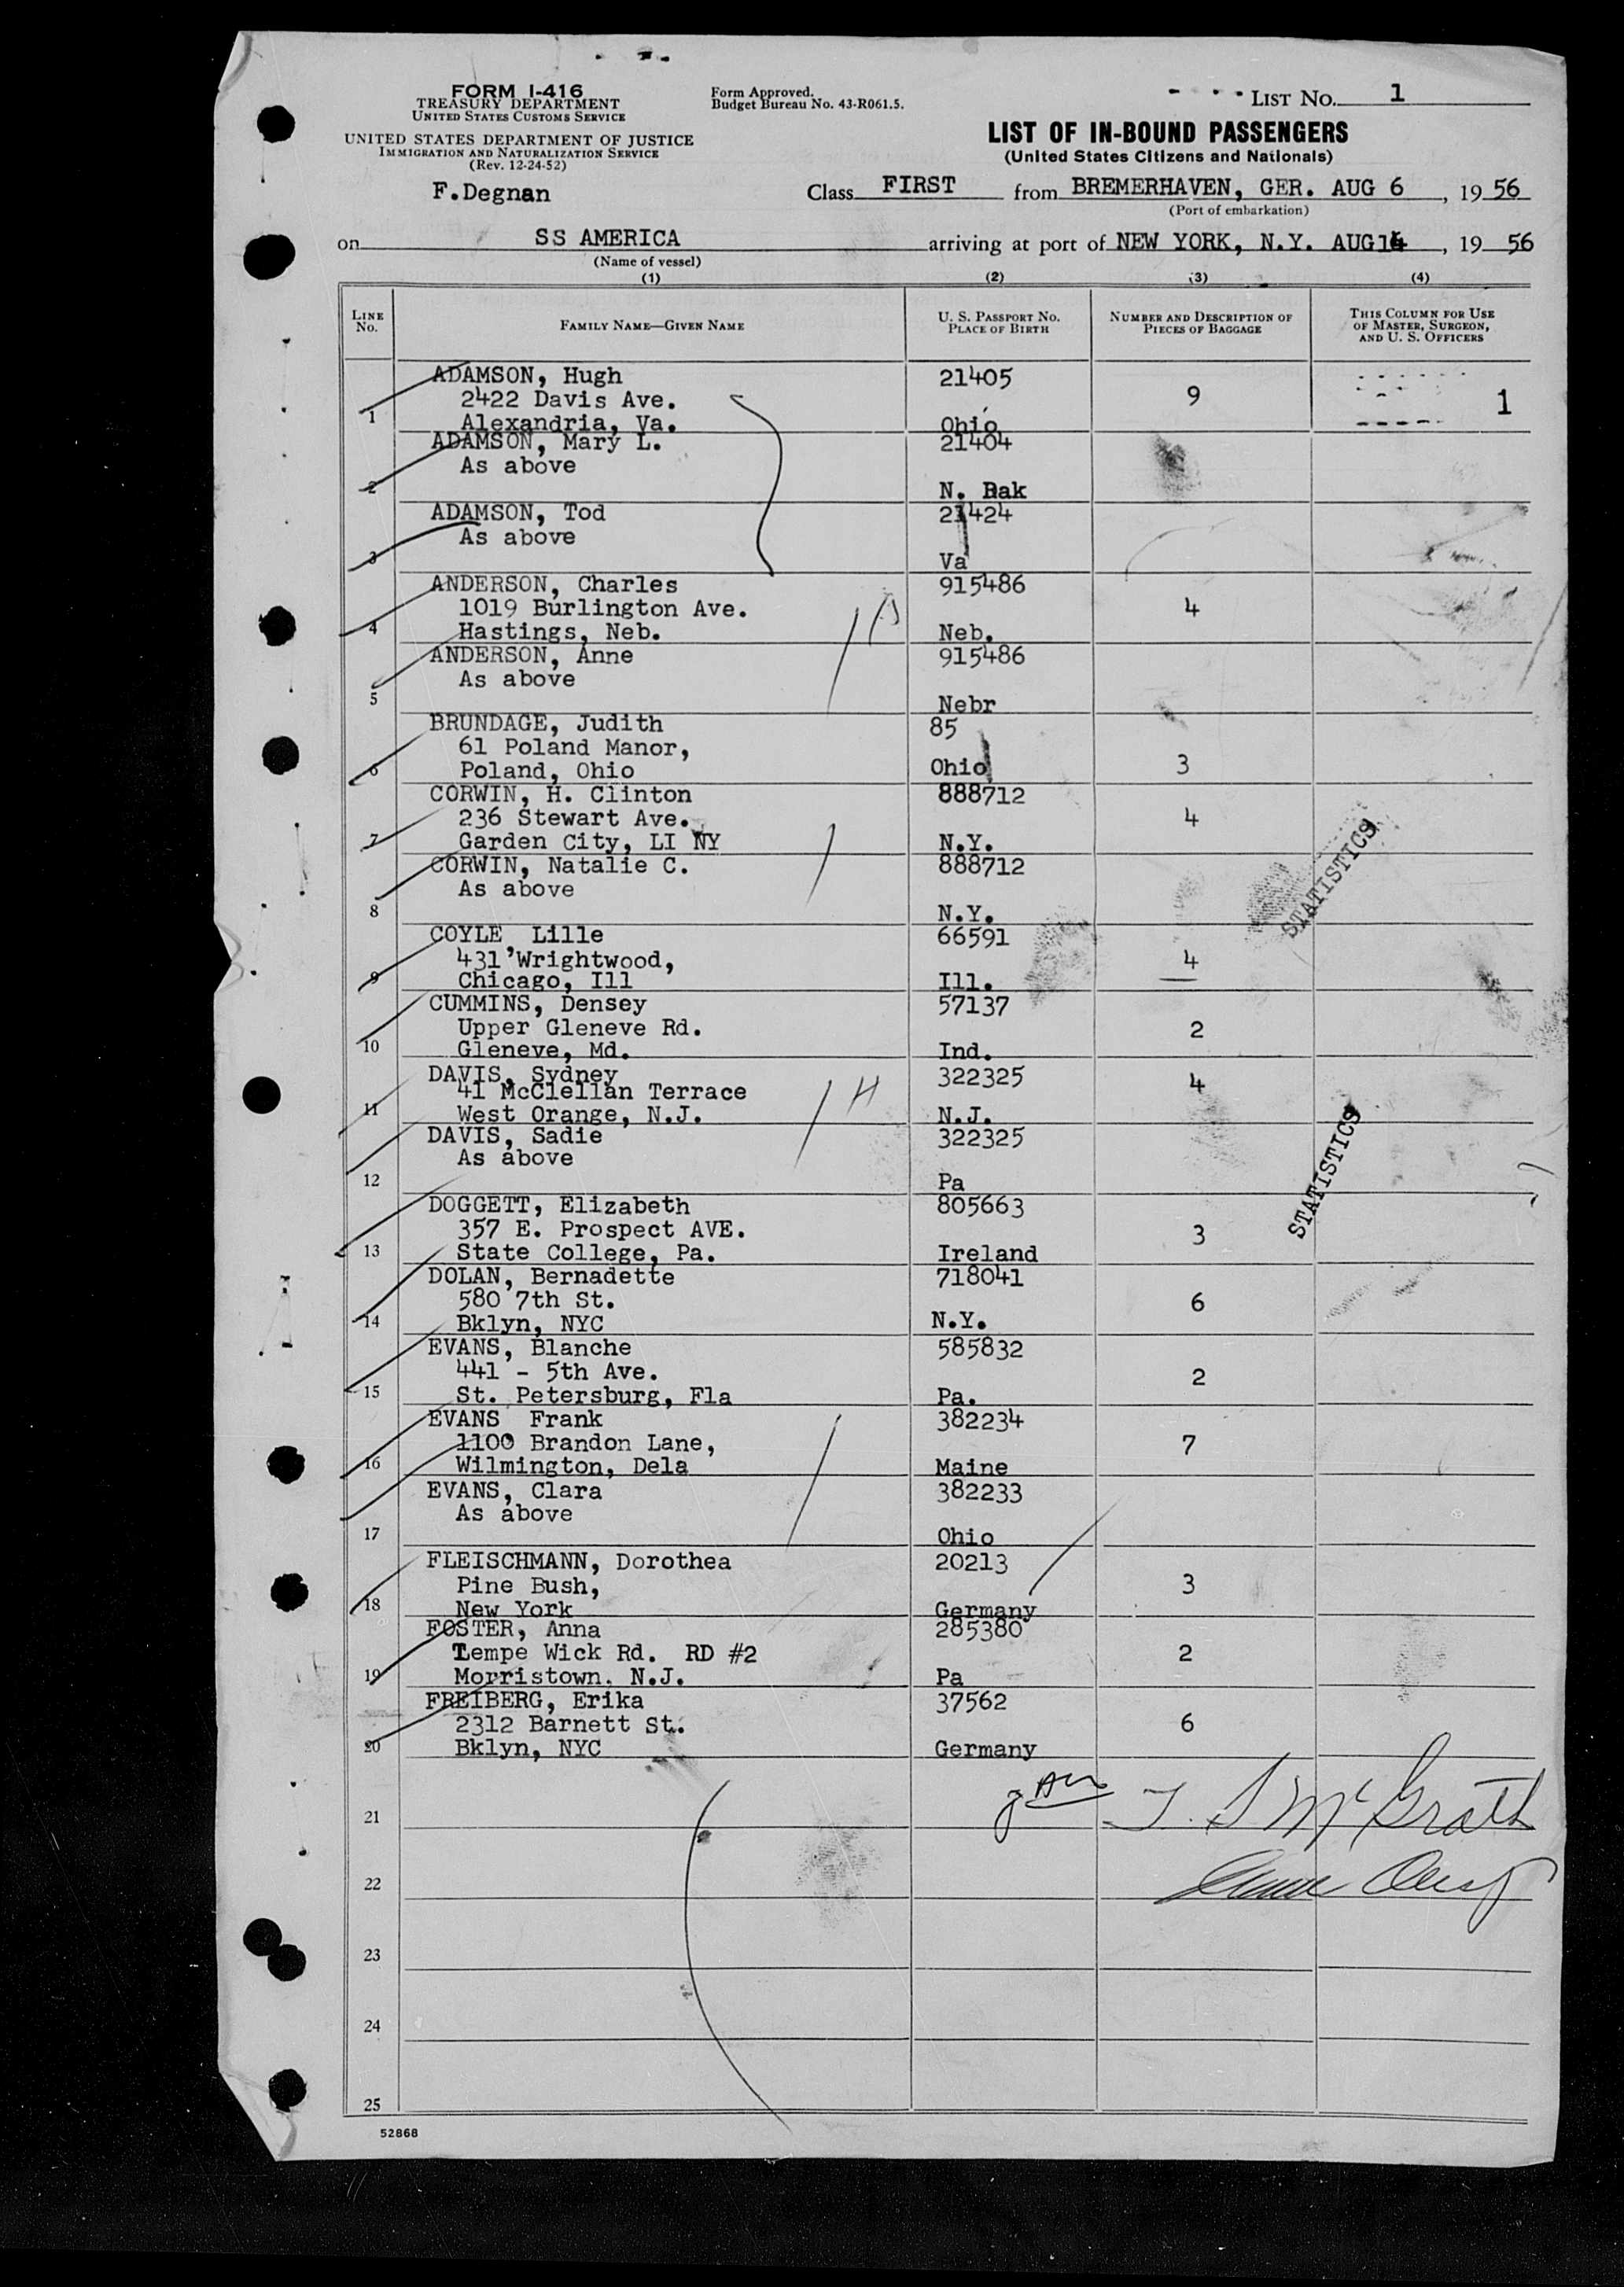 FORM I-416
TREASURY DEPARTMENT
UNITED STATES CUSTOMS SERVICE
UNITED STATES DEPARTMENT OF JUSTICE
IMMIGRATION AND NATURALIZATION SERVICE
(Rev. 12-24-52)
F.Degnan
Form Approved.
Budget Bureau No. 43-R061.5.
LIST NO. 1
LIST OF IN-BOUND PASSENGERS
(United States Citizens and Nationals)
Class FIRST from BREMERHAVEN, GER. AUG 6, 19 56
(Port of embarkation)
on SS AMERICA arriving at port of NEW YORK, N.Y. AUG 14, 19 56
(Name of vessel)
(1) (2) (3) (4)
LINE NO. FAMILY NAME—GIVEN NAME U. S. PASSPORT NO. PLACE OF BIRTH NUMBER AND DESCRIPTION OF PIECES OF BAGGAGE THIS COLUMN FOR USE OF MASTER, SURGEON, AND U. S. OFFICERS
ADAMSON, Hugh 21405
2422 Davis Ave. 9 1
1 Alexandria, Va. Ohio
ADAMSON, Mary L. 21404
As above
2 N. Dak
ADAMSON, Tod 21424
As above
3 Va
ANDERSON, Charles 915486
1019 Burlington Ave. 4
4 Hastings, Neb. Neb.
ANDERSON, Anne 915486
As above
5 Nebr
BRUNDAGE, Judith 85
61 Poland Manor,
6 Poland, Ohio Ohio 3
CORWIN, H. Clinton 888712
236 Stewart Ave. 4
7 Garden City, LI NY N.Y.
CORWIN, Natalie C. 888712
As above
8 N.Y.
STATISTICS
COYLE Lille 66591
431'Wrightwood, 4
9 Chicago, Ill Ill.
CUMMINS, Densey 57137
Upper Gleneve Rd. 2
10 Gleneve, Md. Ind.
DAVIS, Sydney 322325 4
41 McClellan Terrace H
11 West Orange, N.J. N.J.
DAVIS, Sadie 322325
As above
12 Pa
STATISTICS
DOGGETT, Elizabeth 805663
357 E. Prospect AVE. 3
13 State College, Pa. Ireland
DOLAN, Bernadette 718041
580 7th St. 6
14 Bklyn, NYC N.Y.
EVANS, Blanche 585832
441 - 5th Ave. 2
15 St. Petersburg, Fla Pa.
EVANS Frank 382234
1100 Brandon Lane, 7
16 Wilmington, Dela Maine
EVANS, Clara 382233
As above
17 Ohio
FLEISCHMANN, Dorothea 20213
Pine Bush, 3
18 New York Germany
FOSTER, Anna 285380
Tempe Wick Rd. RD #2 2
19 Morristown, N.J. Pa
FREIBERG, Erika 37562
2312 Barnett St. 6
20 Bklyn, NYC Germany
21 T. S McGrath
22
23
24
25
52868